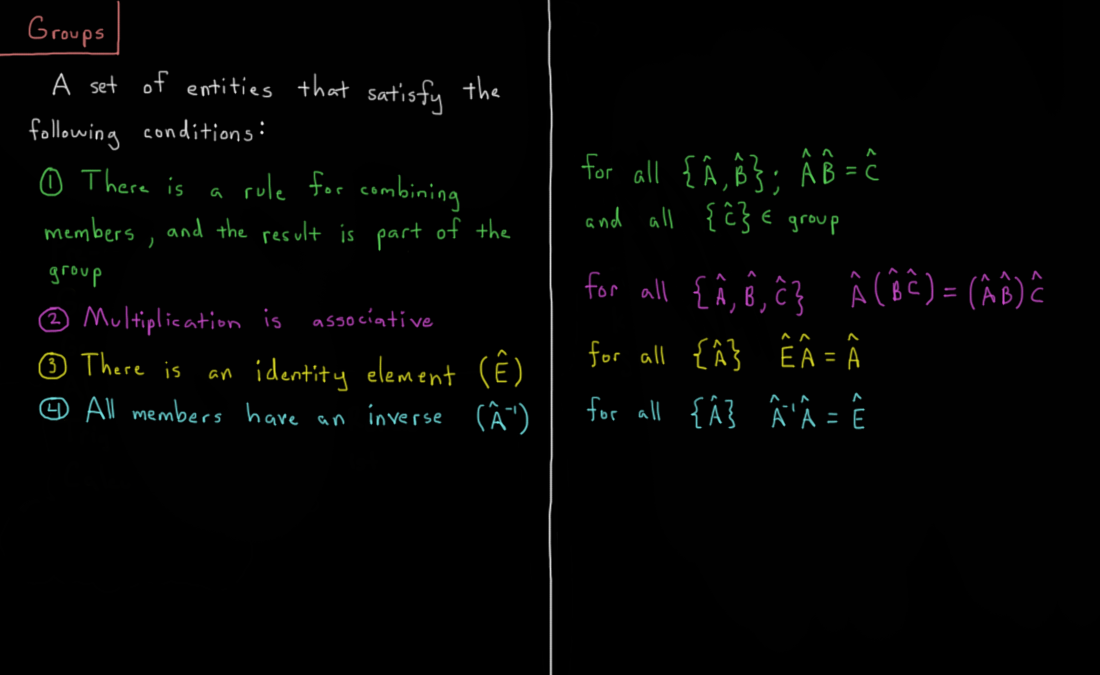 Groups
A set of entities that satisfy the
following conditions:
① There is a rule for combining
members, and the result is part of the
group
② Multiplication is associative
③ There is an identity element (Ê)
④ All members have an inverse (Â⁻¹)
for all {Â, B̂}; ÂB̂ = Ĉ
and all {Ĉ} ∈ group
for all {Â, B̂, Ĉ} Â(B̂Ĉ) = (ÂB̂)Ĉ
for all {Â} ÊÂ = Â
for all {Â} Â⁻¹Â = Ê